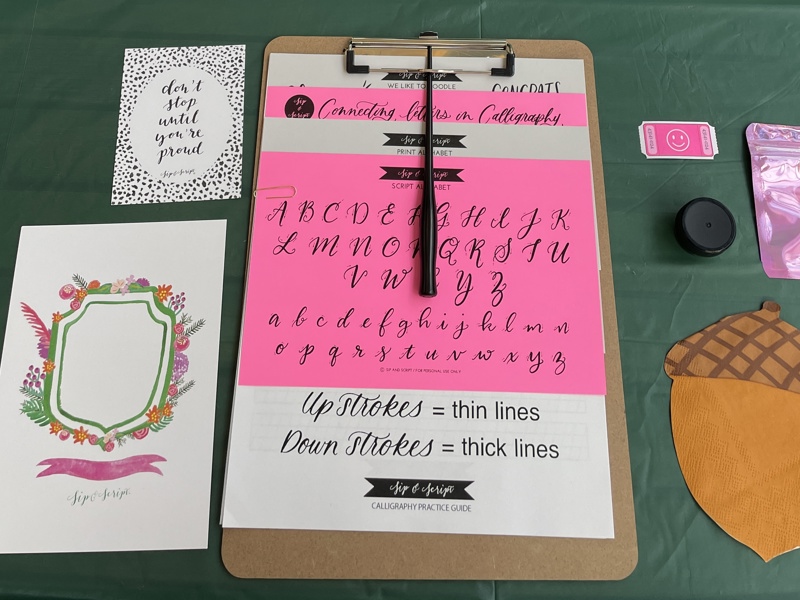 don't
stop
until
you're
proud
Sip & Script
Sip & Script
Sip & Script
WE LIKE TO DOODLE
CONGRATS
Sip & Script
Connecting letters in Calligraphy.
Sip & Script
PRINT ALPHABET
Sip & Script
SCRIPT ALPHABET
A B C D E F G H I J K
L M N O P Q R S T U
V W X Y Z
a b c d e f g h i j k l m n
o p q r s t u v w x y z
© SIP AND SCRIPT | FOR PERSONAL USE ONLY
Up strokes = thin lines
Down strokes = thick lines
Sip & Script
CALLIGRAPHY PRACTICE GUIDE